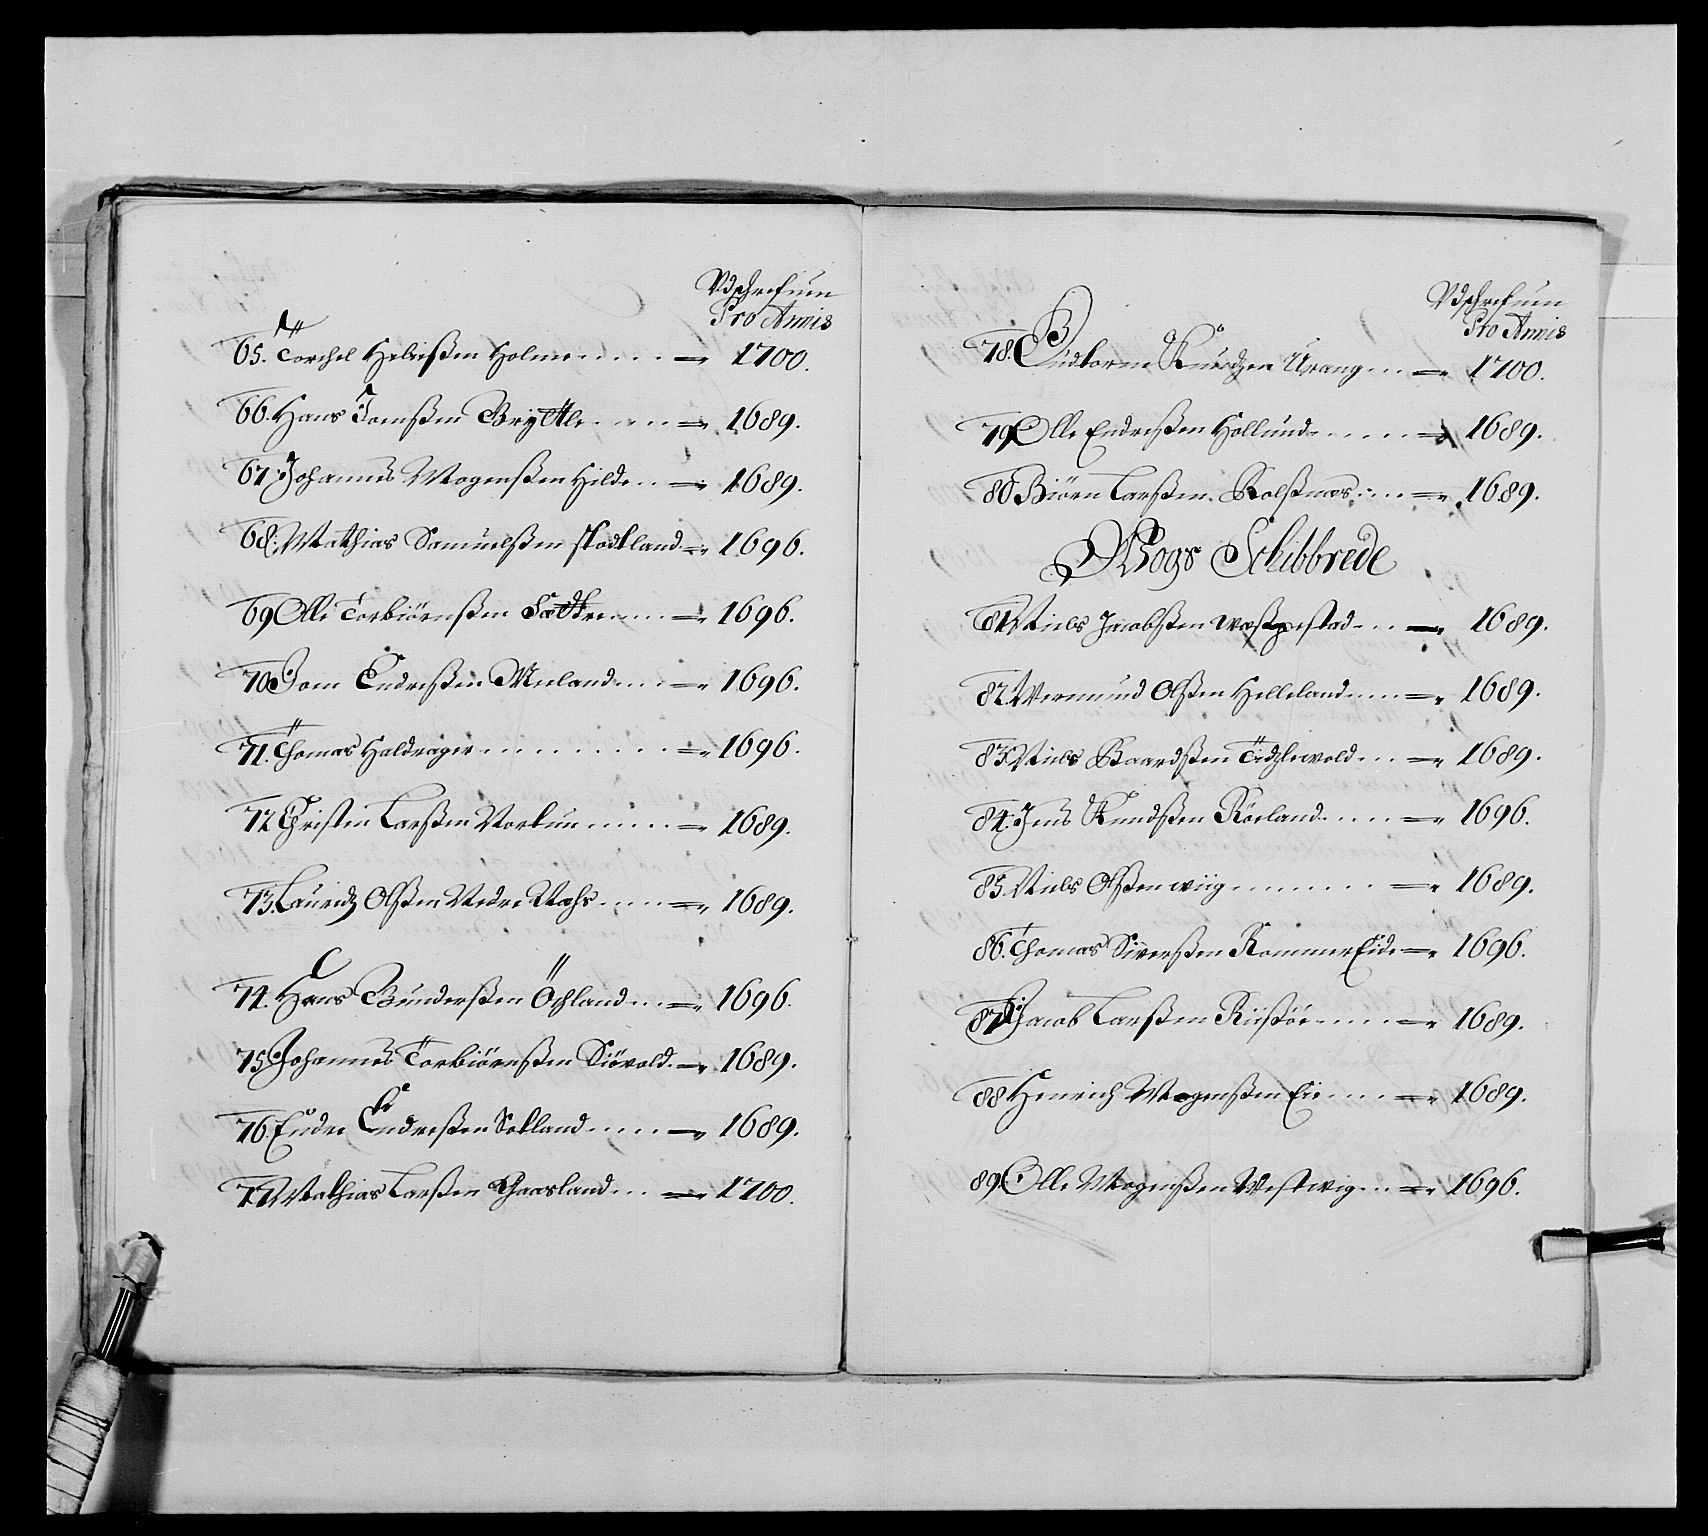 Udschrefuen
Pro Annis
65. Torchel Helie​ßen Holme — 1700.
66. Hans Tomßen Brÿttle — 1689.
67. Johannes Mogenßen Hilde — 1689.
68. Mathias Samuelßen Stockland — 1696.
69 Olle Torbiörnßen — 1696.
70 Joen Endreßen Meeland — 1696.
71. Thomas Haldrager — 1696.
72 Christen Larßen — 1689.
73. Lauridz Olßen Nedre Vahs — 1689.
74. Hans Gunderßen Öchland — 1696.
75 Johannes Torbiörnßen Siövold — 1689.
76. Endre Endreßen Sokland — 1689.
77 Mathias Larßen Gaasland — 1700.
Udschrefuen
Pro Annis
78. Gudtorm Knudzen Urang — 1700.
79 Olle Endreßen Hollund — 1689.
80 Biörn Larßen Rolßnes — 1689.
Wogs Schibbrede
81 Niels Jacobßen — 1689.
82. Wermund Olßen Helleland — 1689.
83. Niels Baardßen — 1689.
84. Jens Knudßen Röeland — 1696.
85. Niels Olßen wiig — 1689.
86. Thomas Siverßen RommerEide — 1696.
87 Jacob Larßen Riisöe — 1689.
88 Henrich Mogenßen Eie — 1689.
89. Olle Mogenßen Westwig — 1696.